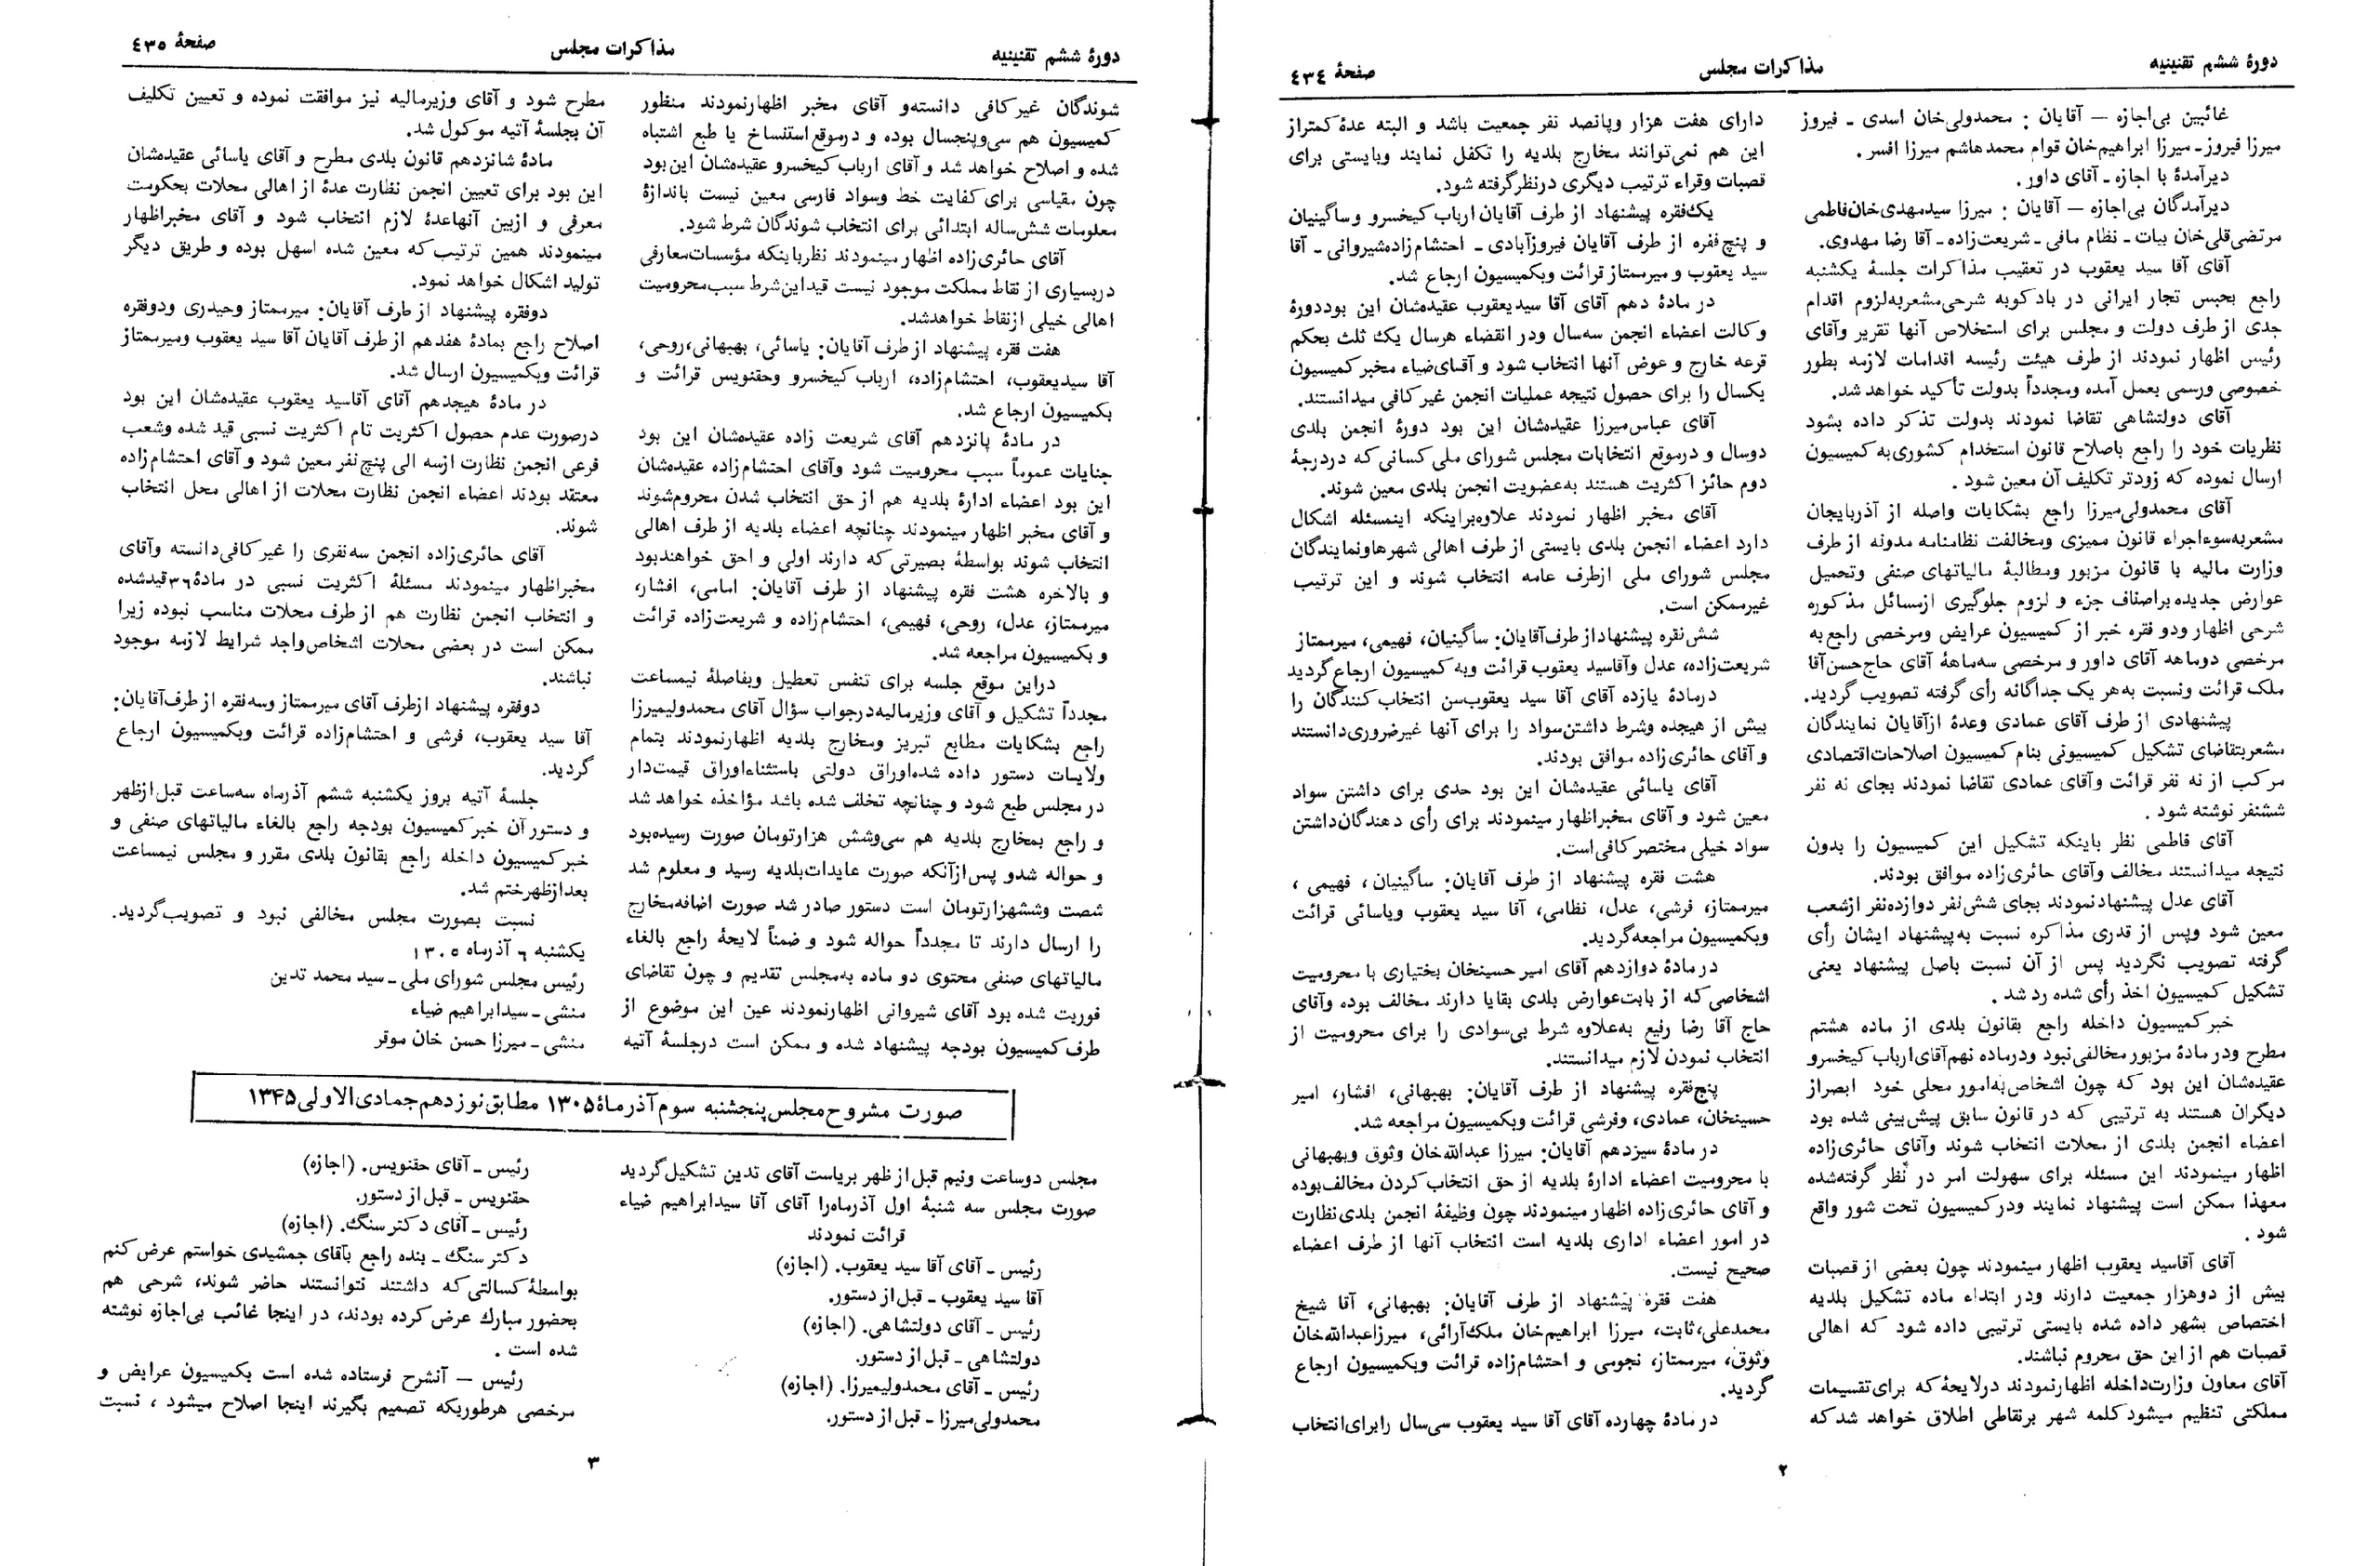 دورهٔ ششم تقنینیه
مذاکرات مجلس
صفحهٔ ٤٣٤
غائبین بی‌اجازه — آقایان : محمدولی‌خان اسدی ـ فیروز
میرزا فیروز ـ میرزا ابراهیم‌خان قوام محمدهاشم میرزا افسر .
دیرآمدهٔ با اجازه ـ آقای داور .
دیرآمدگان بی‌اجازه — آقایان : میرزا سیدمهدی‌خان‌فاطمی
مرتضی‌قلی‌خان بیات ـ نظام مافی ـ شریعت‌زاده ـ آقا رضا مهدوی.
آقای آقا سید یعقوب در تعقیب مذاکرات جلسهٔ یکشنبه
راجع بحبس تجار ایرانی در بادکوبه شرحی‌مشعربه‌لزوم اقدام
جدی از طرف دولت و مجلس برای استخلاص آنها تقریر وآقای
رئیس اظهار نمودند از طرف هیئت رئیسه اقدامات لازمه بطور
خصوصی ورسمی بعمل آمده ومجدداً بدولت تأکید خواهد شد.
آقای دولتشاهی تقاضا نمودند بدولت تذکر داده بشود
نظریات خود را راجع باصلاح قانون استخدام کشوری‌به‌کمیسیون
ارسال نموده که زودتر تکلیف آن معین شود .
آقای محمدولی‌میرزا راجع بشکایات واصله از آذربایجان
مشعربه‌سوءاجراء قانون ممیزی ومخالفت نظامنامه مدونه از طرف
وزارت مالیه با قانون مزبور ومطالبهٔ مالیاتهای صنفی وتحمیل
عوارض جدیده‌براصناف جزء و لزوم جلوگیری ازمسائل مذکوره
شرحی اظهار ودو فقره خبر از کمیسیون عرایض ومرخصی راجع‌به
مرخصی دوماهه آقای داور و مرخصی سه‌ماههٔ آقای حاج‌حسن‌آقا
ملک قرائت ونسبت به‌هر یک جداگانه رأی گرفته تصویب گردید.
پیشنهادی از طرف آقای عمادی وعدهٔ ازآقایان نمایندگان
مشعربتقاضای تشکیل کمیسیونی بنام کمیسیون اصلاحات‌اقتصادی
مرکب از نه نفر قرائت وآقای عمادی تقاضا نمودند بجای نه نفر
ششنفر نوشته شود .
آقای فاطمی نظر باینکه تشکیل این کمیسیون را بدون
نتیجه میدانستند مخالف وآقای حائری‌زاده موافق بودند.
آقای عدل پیشنهادنمودند بجای شش‌نفر دوازده‌نفر ازشعب
معین شود وپس از قدری مذاکره نسبت به‌پیشنهاد ایشان رأی
گرفته تصویب نگردید پس از آن نسبت باصل پیشنهاد یعنی
تشکیل کمیسیون اخذ رأی شده رد شد .
خبرکمیسیون داخله راجع بقانون بلدی از ماده هشتم
مطرح ودر مادهٔ مزبور مخالفی‌نبود ودرماده نهم‌آقای‌ارباب کیخسرو
عقیده‌شان این بود که چون اشخاص‌به‌امور محلی خود ابصراز
دیگران هستند به ترتیبی که در قانون سابق پیش‌بینی شده بود
اعضاء انجمن بلدی از محلات انتخاب شوند وآقای حائری‌زاده
اظهار مینمودند این مسئله برای سهولت امر در نظر گرفته‌شده
معهذا ممکن است پیشنهاد نمایند ودرکمیسیون تحت شور واقع
شود .
آقای آقاسید یعقوب اظهار مینمودند چون بعضی از قصبات
بیش از دوهزار جمعیت دارند ودر ابتداء ماده تشکیل بلدیه
اختصاص بشهر داده شده بایستی ترتیبی داده شود که اهالی
قصبات هم از این حق محروم نباشند.
آقای معاون وزارت‌داخله اظهارنمودند درلایحهٔ که برای‌تقسیمات
مملکتی تنظیم میشود کلمه شهر برنقاطی اطلاق خواهد شد که
دارای هفت هزار وپانصد نفر جمعیت باشد و البته عدهٔ کمتراز
این هم نمی‌توانند مخارج بلدیه را تکفل نمایند وبایستی برای
قصبات وقراء ترتیب دیگری درنظرگرفته شود.
یک‌فقره پیشنهاد از طرف آقایان ارباب کیخسرو وساگینیان
و پنج‌فقره از طرف آقایان فیروزآبادی ـ احتشام‌زاده‌شیروانی ـ آقا
سید یعقوب و میرممتاز قرائت وبکمیسیون ارجاع شد.
در مادهٔ دهم آقای آقا سید یعقوب عقیده‌شان این بوددورهٔ
وکالت اعضاء انجمن سه‌سال ودر انقضاء هرسال یک ثلث بحکم
قرعه خارج و عوض آنها انتخاب شود و آقای‌ضیاء مخبر کمیسیون
یکسال را برای حصول نتیجه عملیات انجمن غیرکافی میدانستند.
آقای عباس‌میرزا عقیده‌شان این بود دورهٔ انجمن بلدی
دوسال و درموقع انتخابات مجلس شورای ملی کسانی که دردرجهٔ
دوم حائز اکثریت هستند به‌عضویت انجمن بلدی معین شوند.
آقای مخبر اظهار نمودند علاوه‌براینکه اینمسئله اشکال
دارد اعضاء انجمن بلدی بایستی از طرف اهالی شهرهاونمایندگان
مجلس شورای ملی ازطرف عامه انتخاب شوند و این ترتیب
غیرممکن است.
شش‌نقره پیشنهاداز طرف‌آقایان: ساگینیان، فهیمی، میرممتاز
شریعت‌زاده، عدل وآقاسید یعقوب قرائت وبه کمیسیون ارجاع گردید
درمادهٔ یازده آقای آقا سید یعقوب‌سن انتخاب کنندگان را
بیش از هیجده وشرط داشتن‌سواد را برای آنها غیرضروری‌دانستند
و آقای حائری‌زاده موافق بودند.
آقای یاسائی عقیده‌شان این بود حدی برای داشتن سواد
معین شود و آقای مخبراظهار مینمودند برای رأی دهندگان‌داشتن
سواد خیلی مختصر کافی‌است.
هشت فقره پیشنهاد از طرف آقایان: ساگینیان، فهیمی ،
میرممتاز، فرشی، عدل، نظامی، آقا سید یعقوب ویاسائی قرائت
وبکمیسیون مراجعه‌گردید.
در مادهٔ دوازدهم آقای امیر حسینخان بختیاری با محرومیت
اشخاصی که از بابت‌عوارض بلدی بقایا دارند مخالف بوده وآقای
حاج آقا رضا رفیع به‌علاوه شرط بی‌سوادی را برای محرومیت از
انتخاب نمودن لازم میدانستند.
پنج‌فقره پیشنهاد از طرف آقایان: بهبهانی، افشار، امیر
حسینخان، عمادی، وفرشی قرائت وبکمیسیون مراجعه شد.
در مادهٔ سیزدهم آقایان: میرزا عبداللّه‌خان وثوق وبهبهانی
با محرومیت اعضاء ادارهٔ بلدیه از حق انتخاب کردن مخالف‌بوده
و آقای حائری‌زاده اظهار مینمودند چون وظیفهٔ انجمن بلدی نظارت
در امور اعضاء اداری بلدیه است انتخاب آنها از طرف اعضاء
صحیح نیست.
هفت فقره پیشنهاد از طرف آقایان: بهبهانی، آقا شیخ
محمدعلی، ثابت، میرزا ابراهیم‌خان ملک‌آرائی، میرزاعبداللّه‌خان
وثوق، میرممتاز، نجومی و احتشام‌زاده قرائت وبکمیسیون ارجاع
گردید.
در مادهٔ چهارده آقای آقا سید یعقوب سی‌سال رابرای‌انتخاب
۲
دورهٔ ششم تقنینیه
مذاکرات مجلس
صفحهٔ ٤٣٥
شوندگان غیرکافی دانسته‌و آقای مخبر اظهارنمودند منظور
کمیسیون هم سی‌وپنجسال بوده و درموقع‌استنساخ یا طبع اشتباه
شده و اصلاح خواهد شد و آقای ارباب کیخسرو عقیده‌شان این‌بود
چون مقیاسی برای کفایت خط وسواد فارسی معین نیست باندازهٔ
معلومات شش‌ساله ابتدائی برای انتخاب شوندگان شرط شود.
آقای حائری‌زاده اظهار مینمودند نظرباینکه مؤسسات‌معارفی
دربسیاری از نقاط مملکت موجود نیست قیداین‌شرط سبب‌محرومیت
اهالی خیلی ازنقاط خواهدشد.
هفت فقره پیشنهاد از طرف آقایان: یاسائی، بهبهانی،روحی،
آقا سیدیعقوب، احتشام‌زاده، ارباب کیخسرو وحقنویس قرائت و
بکمیسیون ارجاع شد.
در مادهٔ پانزدهم آقای شریعت زاده عقیده‌شان این بود
جنایات عموماً سبب محرومیت شود وآقای احتشام‌زاده عقیده‌شان
این بود اعضاء ادارهٔ بلدیه هم از حق انتخاب شدن محروم‌شوند
و آقای مخبر اظهار مینمودند چنانچه اعضاء بلدیه از طرف اهالی
انتخاب شوند بواسطهٔ بصیرتی که دارند اولی و احق خواهندبود
و بالاخره هشت فقره پیشنهاد از طرف آقایان: امامی، افشار،
میرممتاز، عدل، روحی، فهیمی، احتشام‌زاده و شریعت‌زاده قرائت
و بکمیسیون مراجعه شد.
دراین موقع جلسه برای تنفس تعطیل وبفاصلهٔ نیمساعت
مجدداً تشکیل و آقای وزیرمالیه‌درجواب سؤال آقای محمدولیمیرزا
راجع بشکایات مطابع تبریز ومخارج بلدیه اظهارنمودند بتمام
ولایات دستور داده شده‌اوراق دولتی باستثناءاوراق قیمت‌دار
در مجلس طبع شود و چنانچه تخلف شده باشد مؤاخذه خواهد شد
و راجع بمخارج بلدیه هم سی‌وشش هزارتومان صورت رسیده‌بود
و حواله شدو پس‌ازآنکه صورت عایدات‌بلدیه رسید و معلوم شد
شصت وششهزارتومان است دستور صادر شد صورت اضافه‌مخارج
را ارسال دارند تا مجدداً حواله شود و ضمناً لایحهٔ راجع بالغاء
مالیاتهای صنفی محتوی دو ماده به‌مجلس تقدیم و چون تقاضای
فوریت شده بود آقای شیروانی اظهارنمودند عین این موضوع از
طرف کمیسیون بودجه پیشنهاد شده و ممکن است درجلسهٔ آتیه
مطرح شود و آقای وزیرمالیه نیز موافقت نموده و تعیین تکلیف
آن بجلسهٔ آتیه موکول شد.
مادهٔ شانزدهم قانون بلدی مطرح و آقای یاسائی عقیده‌شان
این بود برای تعیین انجمن نظارت عدهٔ از اهالی محلات بحکومت
معرفی و ازبین آنهاعدهٔ لازم انتخاب شود و آقای مخبراظهار
مینمودند همین ترتیب که معین شده اسهل بوده و طریق دیگر
تولید اشکال خواهد نمود.
دوفقره پیشنهاد از طرف آقایان: میرممتاز وحیدری ودوفقره
اصلاح راجع بمادهٔ هفدهم از طرف آقایان آقا سید یعقوب ومیرممتاز
قرائت وبکمیسیون ارسال شد.
در مادهٔ هیجدهم آقای آقاسید یعقوب عقیده‌شان این بود
درصورت عدم حصول اکثریت تام اکثریت نسبی قید شده وشعب
فرعی انجمن نظارت ازسه الی پنج‌نفر معین شود و آقای احتشام‌زاده
معتقد بودند اعضاء انجمن نظارت محلات از اهالی محل انتخاب
شوند.
آقای حائری‌زاده انجمن سه‌نفری را غیرکافی‌دانسته وآقای
مخبراظهار مینمودند مسئلهٔ اکثریت نسبی در مادهٔ٣٦قیدشده
و انتخاب انجمن نظارت هم از طرف محلات مناسب نبوده زیرا
ممکن است در بعضی محلات اشخاص‌واجد شرایط لازمه موجود
نباشند.
دوفقره پیشنهاد ازطرف آقای میرممتاز وسه‌نقره از طرف‌آقایان:
آقا سید یعقوب، فرشی و احتشام‌زاده قرائت وبکمیسیون ارجاع
گردید.
جلسهٔ آتیه بروز یکشنبه ششم آذرماه سه‌ساعت قبل‌ازظهر
و دستورآن خبرکمیسیون بودجه راجع بالغاء مالیاتهای صنفی و
خبرکمیسیون داخله راجع بقانون بلدی مقرر و مجلس نیمساعت
بعدازظهرختم شد.
نسبت بصورت مجلس مخالفی نبود و تصویب‌گردید.
یکشنبه ٦ آذرماه ١٣٠٥
رئیس مجلس شورای ملی ـ سید محمد تدین
منشی ـ سیدابراهیم ضیاء
منشی ـ میرزا حسن خان موقر
صورت مشروح‌مجلس‌پنجشنبه سوم‌آذرماهٔ۱۳۰۵ مطابق‌نوزدهم‌جمادی‌الاولی۱۳۴۵
مجلس دوساعت ونیم قبل‌از ظهر بریاست آقای تدین تشکیل‌گردید
صورت مجلس سه شنبهٔ اول آذرماه‌را آقای آقا سیدابراهیم ضیاء
قرائت نمودند
رئیس ـ آقای آقا سید یعقوب. (اجازه)
آقا سید یعقوب ـ قبل‌از دستور.
رئیس ـ آقای دولتشاهی. (اجازه)
دولتشاهی ـ قبل‌از دستور.
رئیس ـ آقای محمدولیمیرزا. (اجازه)
محمدولی‌میرزا ـ قبل‌از دستور.
رئیس ـ آقای حقنویس. (اجازه)
حقنویس ـ قبل‌از دستور.
رئیس ـ آقای دکتر سنگ. (اجازه)
دکتر سنگ ـ بنده راجع بآقای جمشیدی خواستم عرض کنم
بواسطهٔ کسالتی که داشتند نتوانستند حاضر شوند، شرحی هم
بحضور مبارک عرض کرده بودند، در اینجا غائب بی‌اجازه نوشته
شده است .
رئیس — آنشرح فرستاده شده است بکمیسیون عرایض و
مرخصی هرطوریکه تصمیم بگیرند اینجا اصلاح میشود ، نسبت
۳